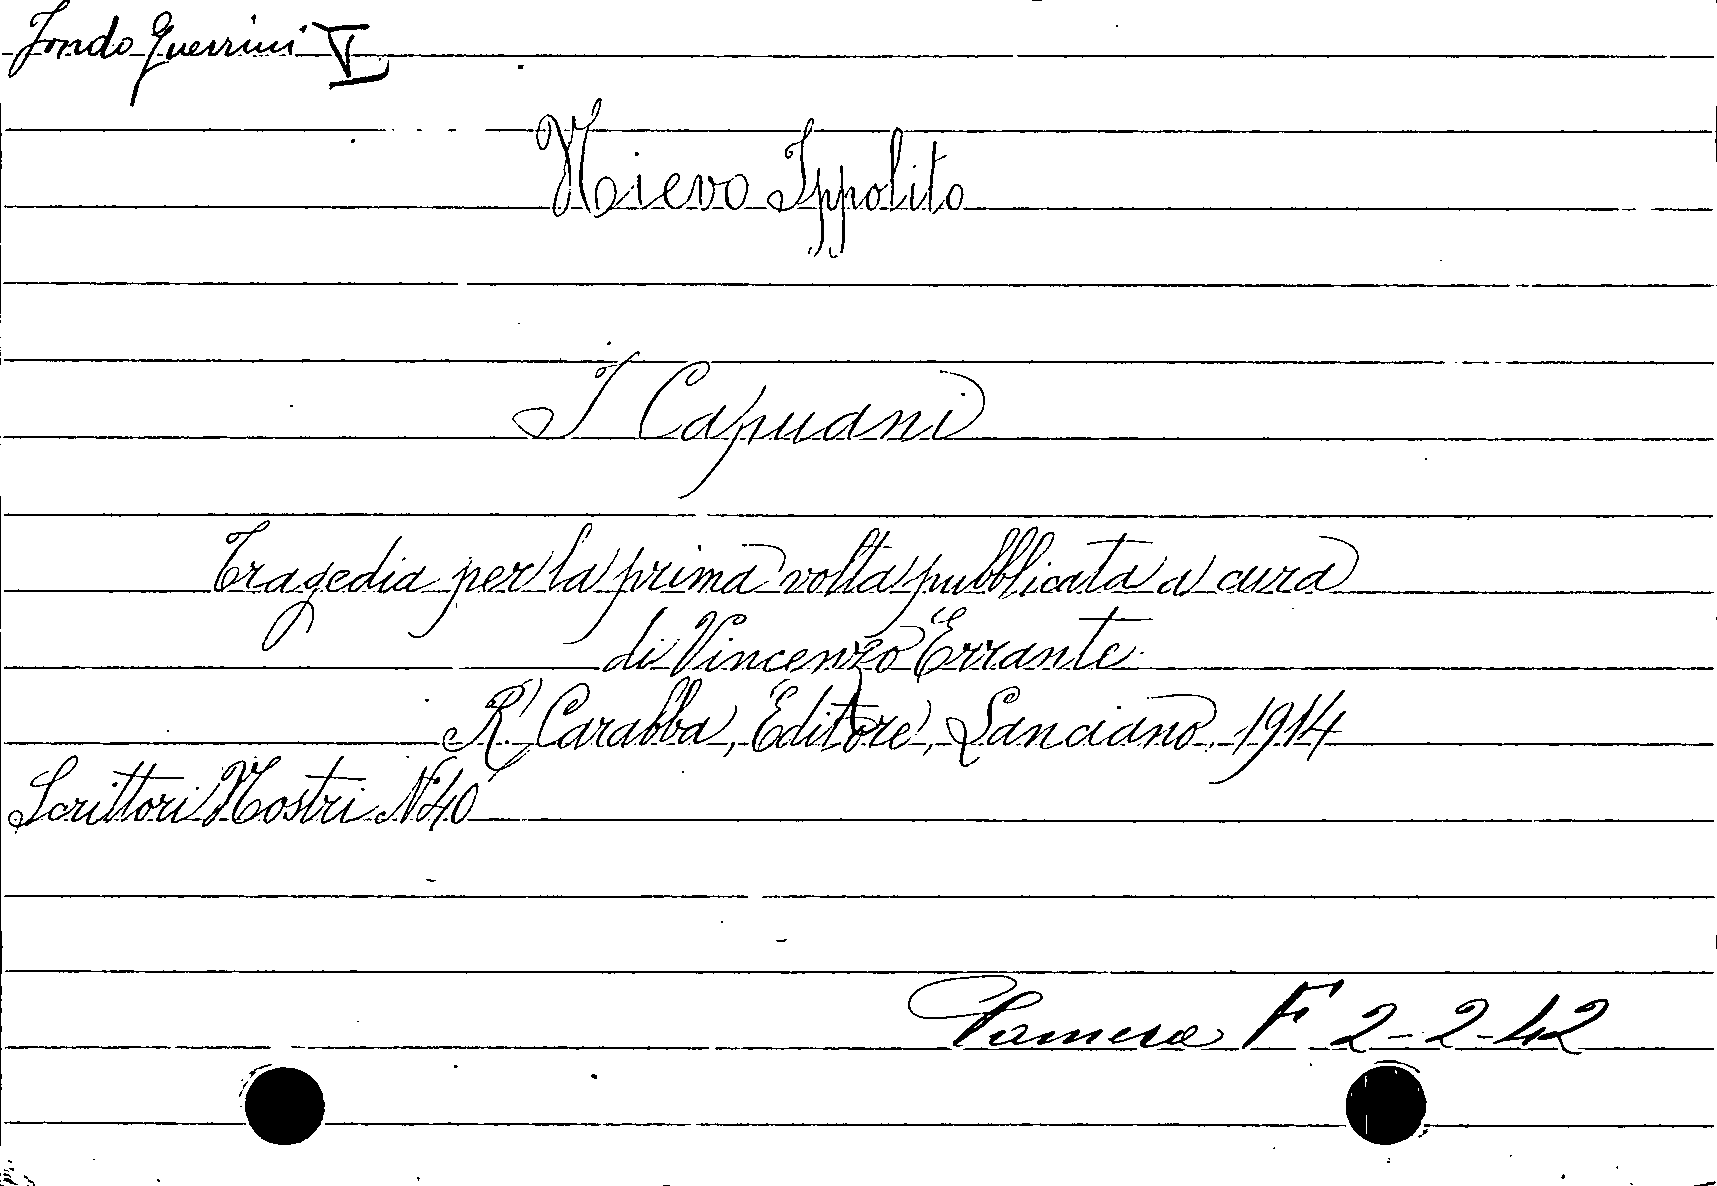 Fondo Guerrini V
Nievo Ippolito
I Capuani
Tragedia per la prima volta pubblicata a cura
di Vincenzo Errante
R. Carabba, Editore, Lanciano, 1914
Scrittori Nostri N 40
Camera F 2-2-42